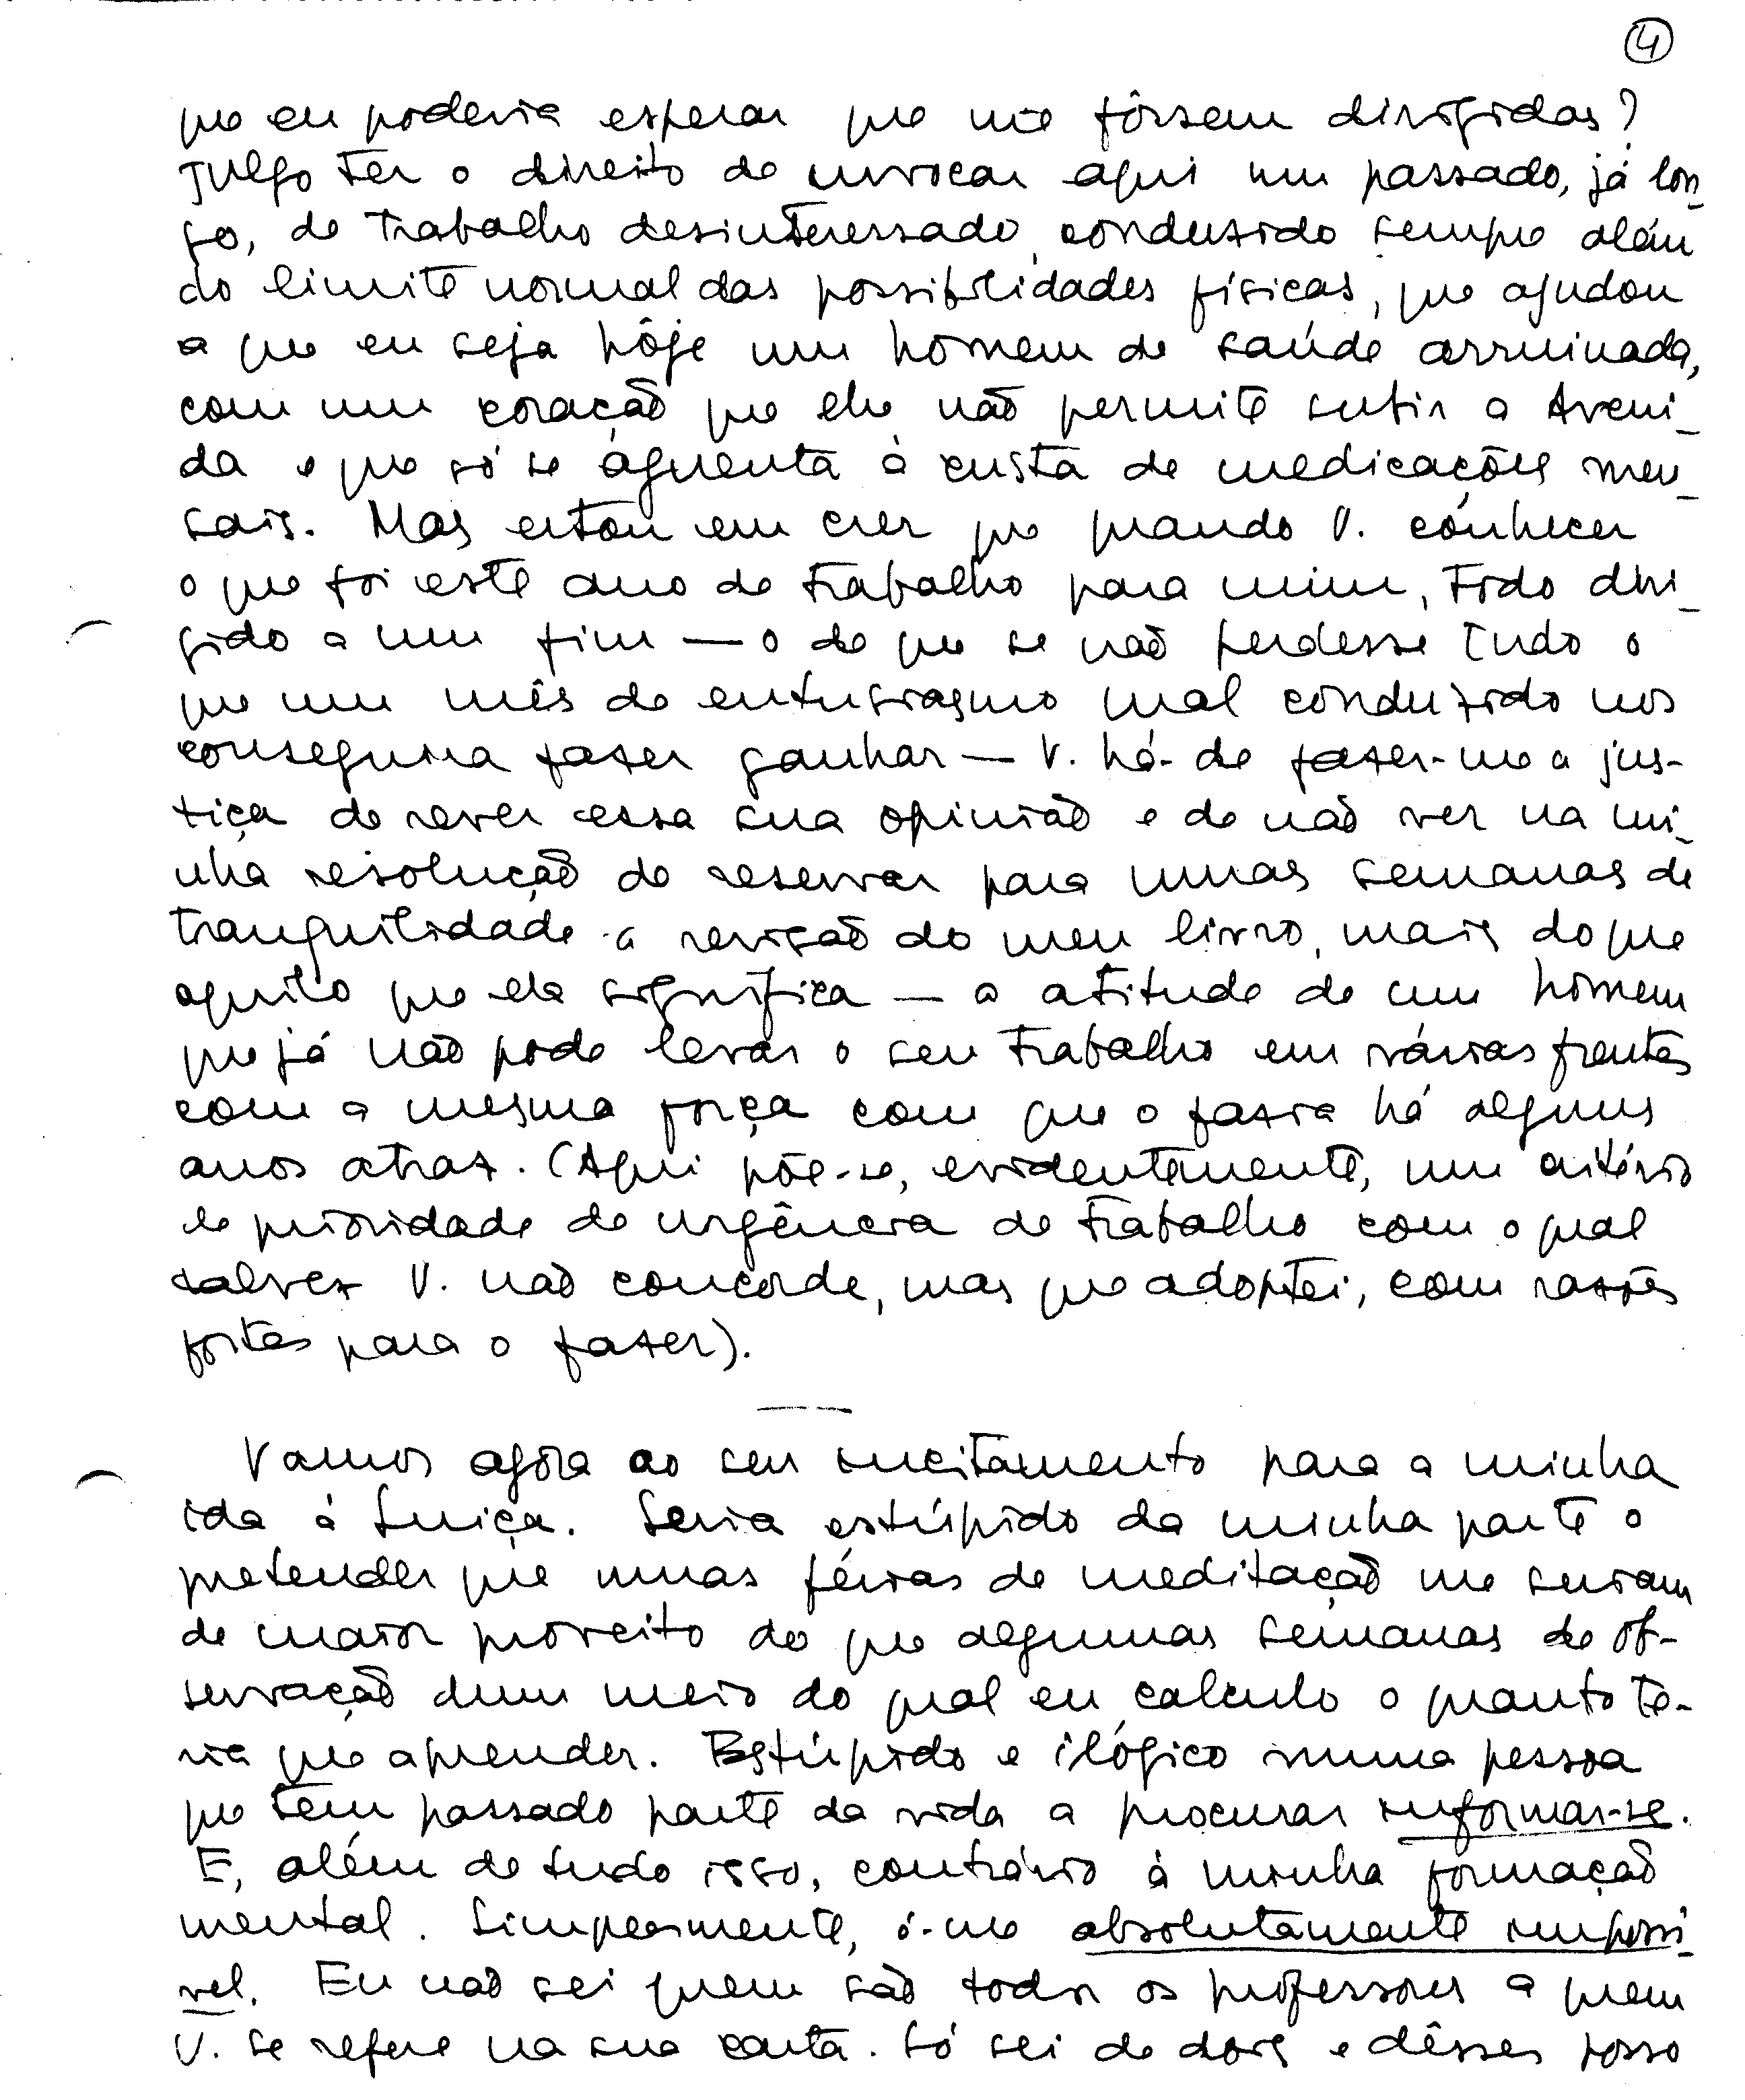 ④
que eu poderia esperar que me fôrsem dirigidas?
Julgo ter o direito de invocar aqui um passado, já lon-
go, de trabalho desinteressado, conduzido sempre além
do limite normal das possibilidades físicas, que ajudou
a que eu seja hôje um homem de saúde arruinada,
com um coração que lhe não permite subir a Aveni-
da e que só se àguenta à custa de medicações men-
sais. Mas estou em crer que quando V. conhecer
o que foi este ano de trabalho para mim, todo diri-
gido a um fim — o de que se não perdesse tudo o
que um mês de entusiasmo mal conduzido nos
conseguira fazer ganhar — V. há-de fazer-me a jus-
tiça de rever essa sua opinião e de não ver na mi-
nha resolução de reservar para umas semanas de
tranquilidade a revisão do meu livro, mais do que
aquilo que ela significa — a atitude de um homem
que já não pode levar o seu trabalho em várias frentes
com a mesma força com que o fazia há alguns
anos atraz. (Aqui põe-se, evidentemente, um critério
de prioridade de urgência de trabalho com o qual
talvez V. não concorde, mas que adoptei, com razões
fortes para o fazer).
Vamos agora ao seu incitamento para a minha
ida à Suiça. Seria estúpido da minha parte o
pretender que umas férias de meditação me seriam
de maior proveito do que algumas semanas de ob-
servação dum meio do qual eu calculo o quanto te-
ria que aprender. Estúpido e ilógico numa pessoa
que tem passado parte da vida a procurar informar-se.
E, além de tudo isso, contrário à minha formação
mental. Simplesmente, é-me absolutamente impossi-
vel. Eu não sei quem são todos os professores a quem
V. se refere na sua carta. Só sei de dois e dêsses posso